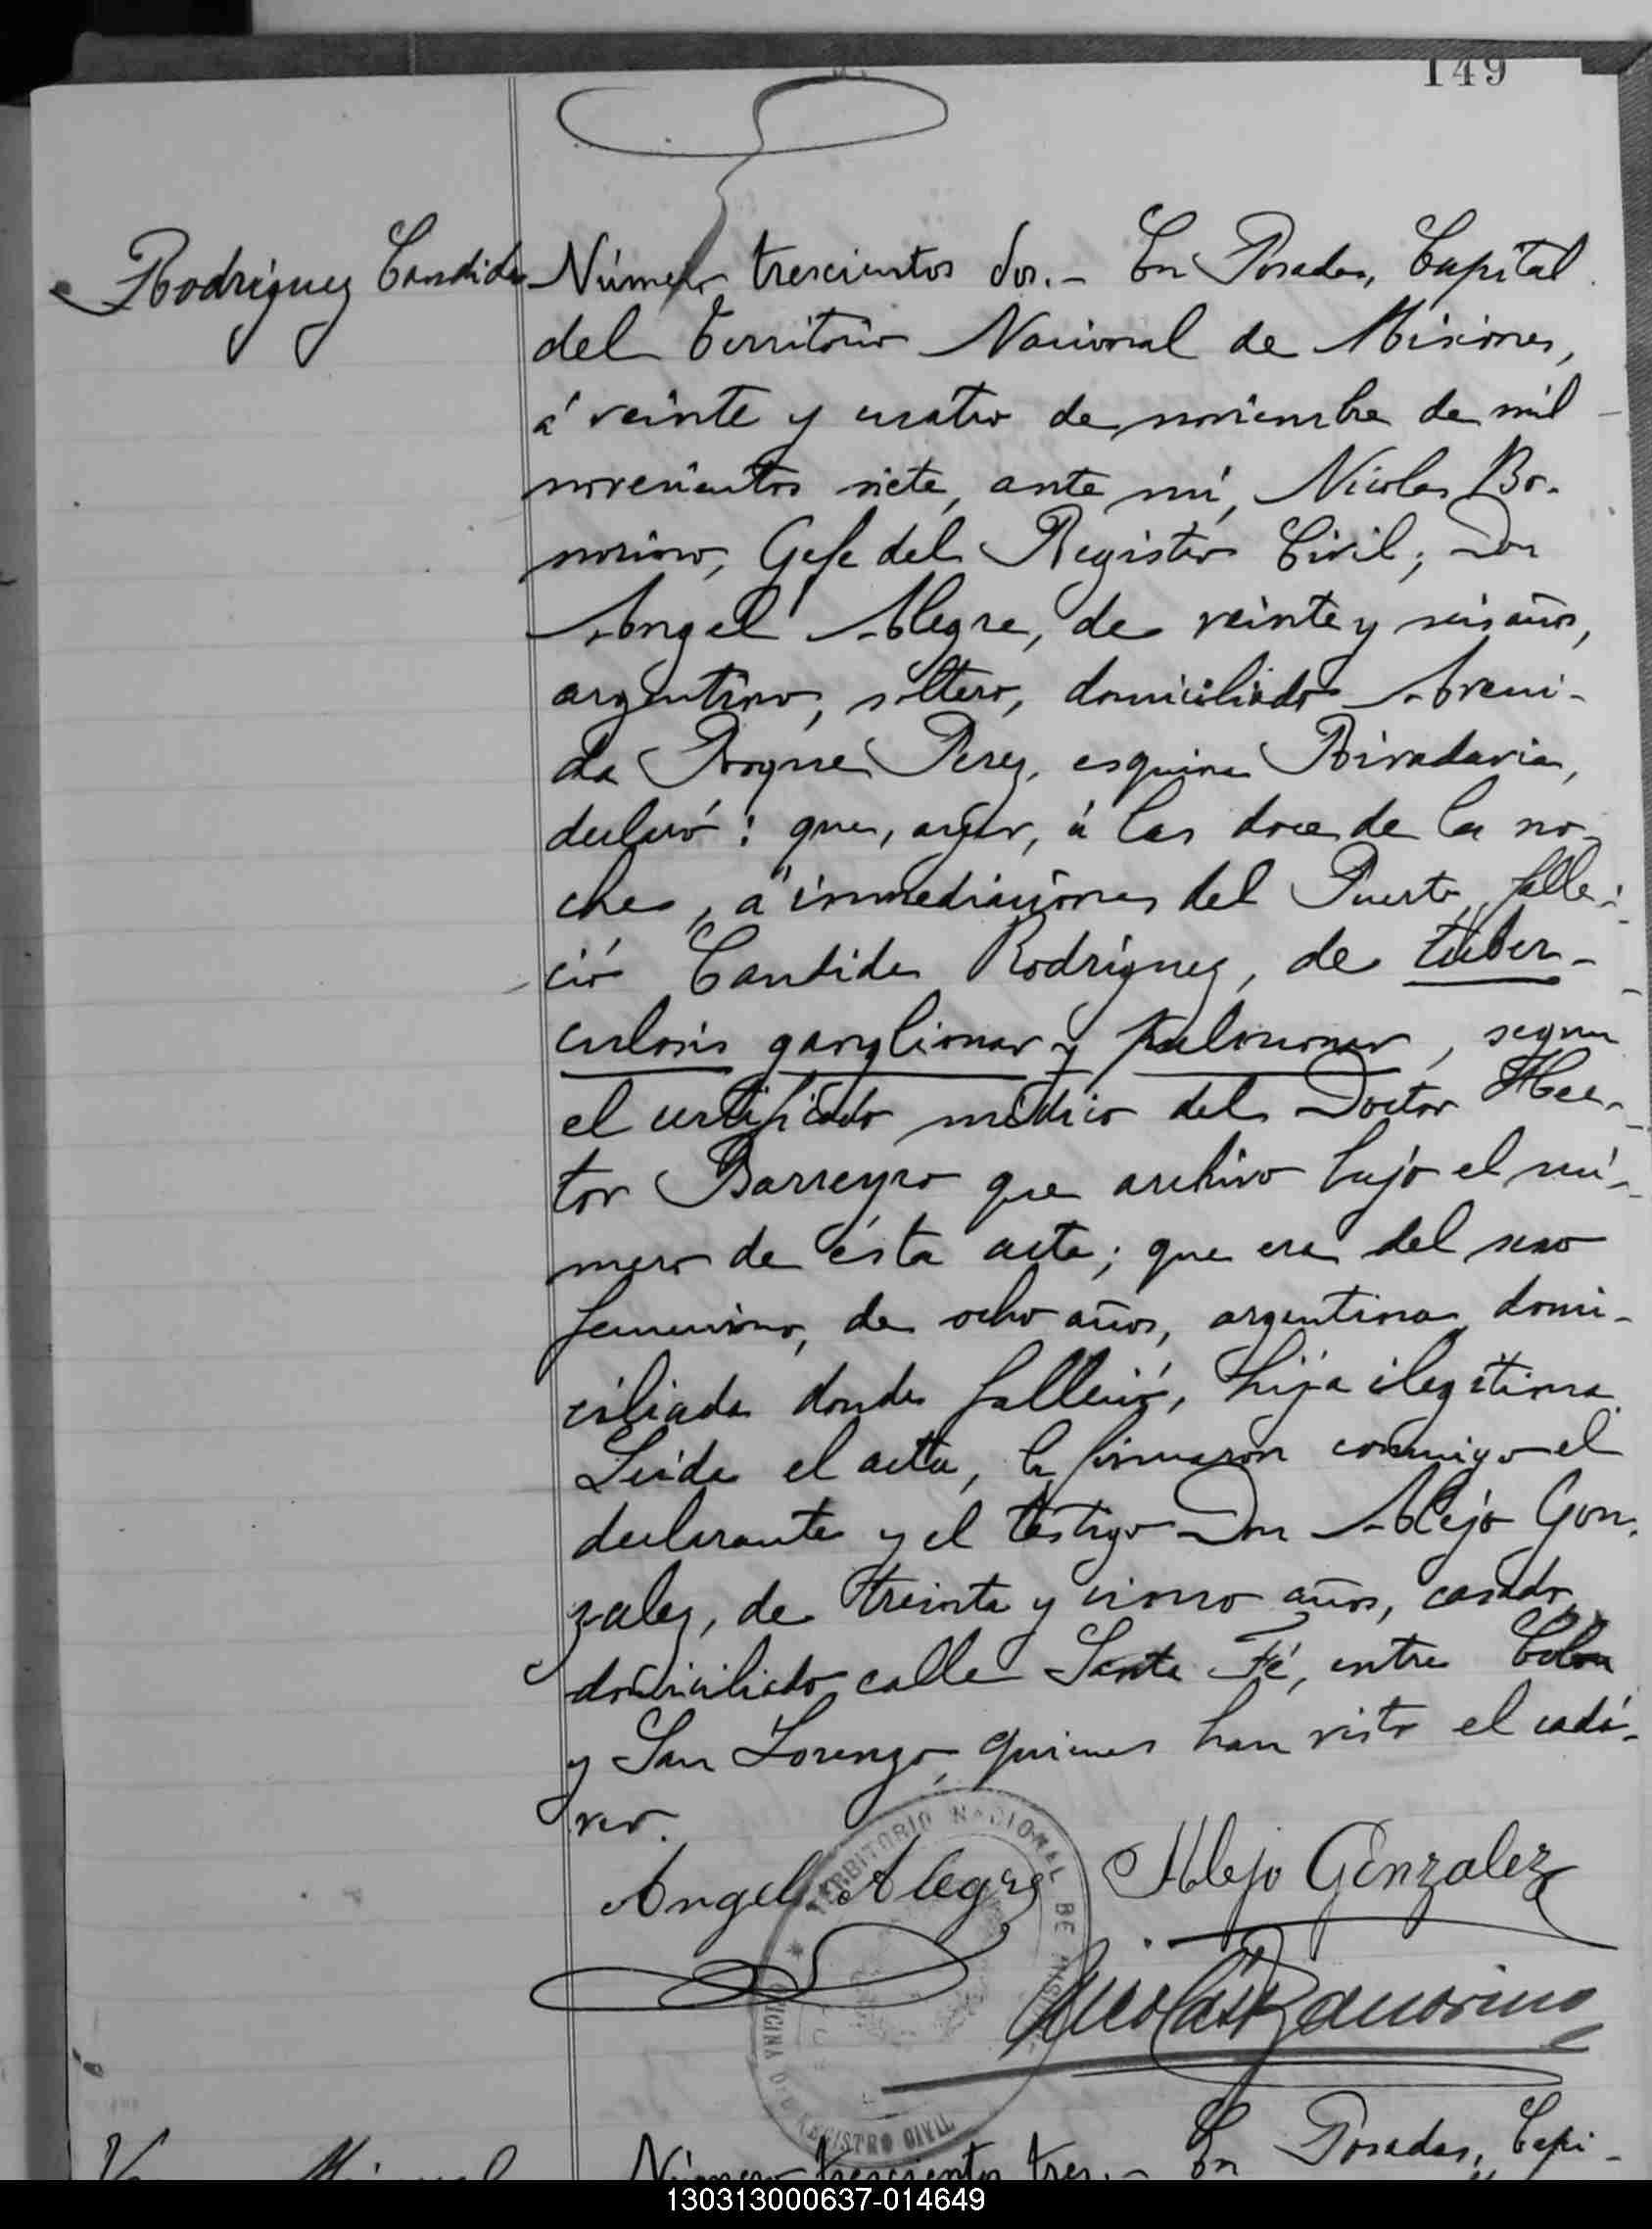 149
Rodríguez Candida
Número trescientos dos.- En Posadas, Capital
del Territorio Nacional de Misiones,
á veinte y cuatro de noviembre de mil
novecientos siete, ante mi, Nicolas Bo-
norino, Gefe del Registro Civil; Don
Angel Alegre, de veinte y seis años,
argentino, soltero, domiciliado Aveni-
da Roque Perez, esquina Rivadavia,
declaró: que, ayer, á las doce de la no-
che, á inmediaciones del Puerto, falle-
ció Candida Rodríguez, de tuber-
culosis ganglionar y pulmonar, segun
el certificado médico del Doctor Hec-
tor Barreyro que archivo bajo el nú-
mero de ésta acta; que era del sexo
femenino, de ocho años, argentina, domi-
ciliada donde falleció, hija ilegítima.
Leida el acta, la firmaron conmigo el
declarante y el testigo Don Alejo Gon-
zalez, de treinta y cinco años, casado,
domiciliado calle Santa Fé, entre Colon
y San Lorenzo, quienes han visto el cadá-
ver.
Angel Alegre
Alejo Gonzalez
Nicolás Bonorino
TERRITORIO NACIONAL DE MISIONES
OFICINA DEL REGISTRO CIVIL
Número trescientos tres.- En Posadas, Capi-
130313000637-014649